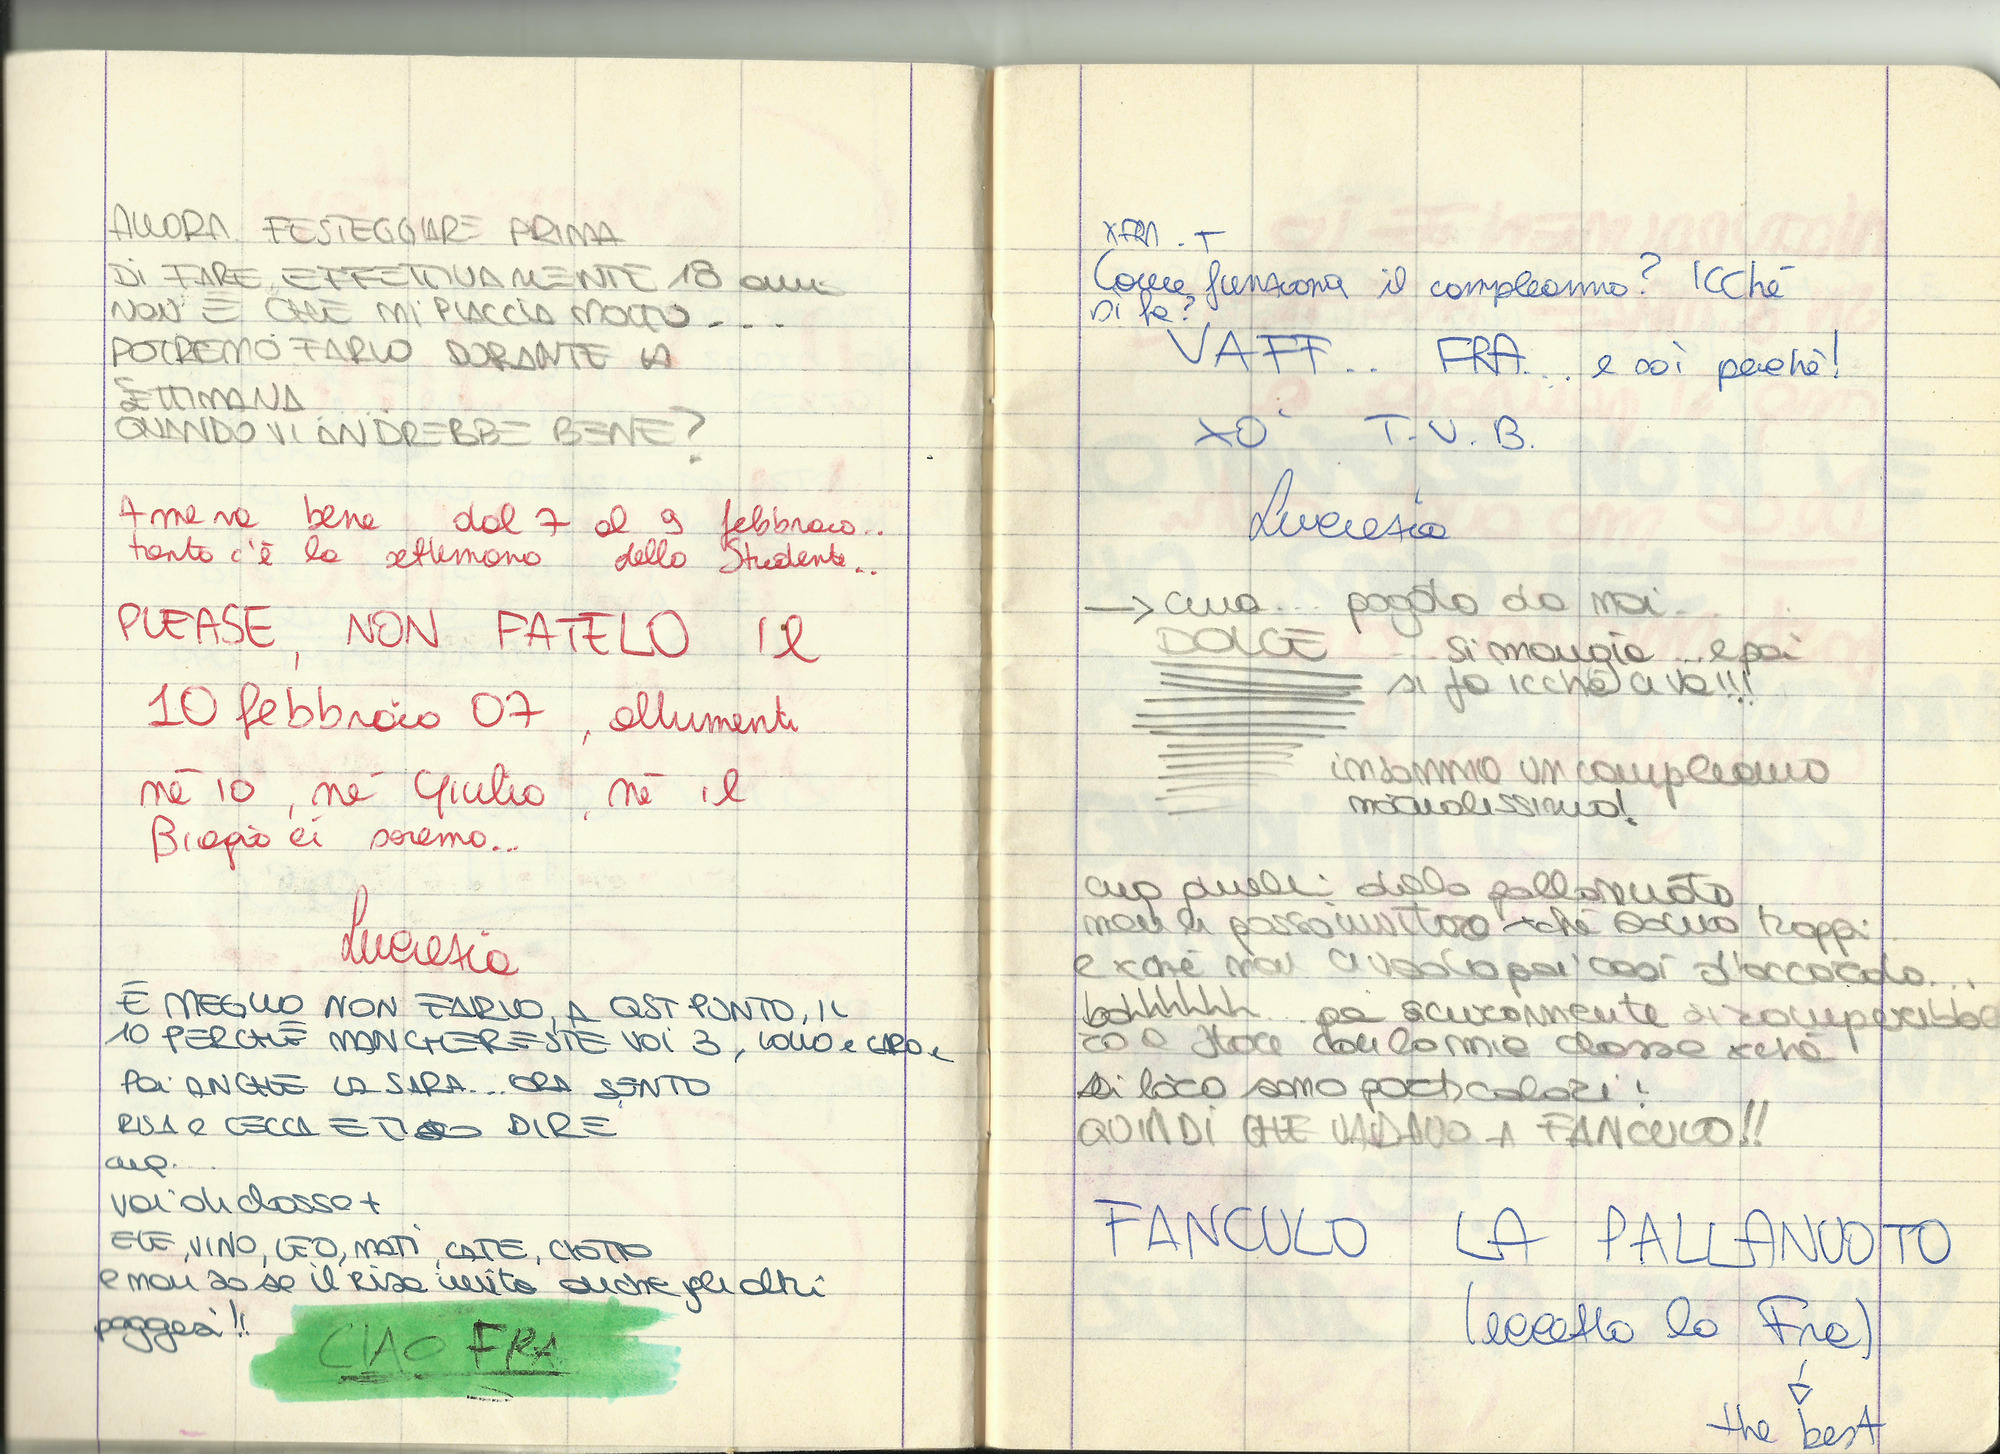 ALLORA FESTEGGIARE PRIMA
DI FARE EFFETTIVAMENTE 18 anni
NON È CHE MI PIACCIA MOLTO...
POTREMO FARLO DURANTE LA
SETTIMANA
QUANDO VI ANDREBBE BENE?
A me va bene dal 7 al 9 febbraio..
tanto c'è la settimana dello Studente..
PLEASE, NON FATELO il
10 febbraio 07, altrimenti
nè io, nè Giulio, nè il
Biagio ci saremo...
Lucrezia
È MEGLIO NON FARLO, A QST PUNTO, IL
10 PERCHÈ MANCHERESTE VOI 3, LOLLO e CARO e
POI ANCHE LA SARA... ORA SENTO
RISA e CECCA E TI SO DIRE
cmq...
voi di classe +
ELE, VINO, LEO, MATI, CATE, CIOTTO
e non so se il Risa invita anche gli altri
poggesi!!
CIAO FRA
XFRA . T
Come funziona il compleanno? ICChé
Si fa?
VAFF.. FRA... e sai perché!
XÒ T.V.B.
Lucrezia
→ cena... pagata da noi...
DOLCE si mangia... e poi
si fa icchè ci va!!!
insomma un compleanno
normalissimo!
cmq quelli della pallanuoto
non li posso invitare xchè sono troppi
e xchè noi ci vedono poi così d'accordo...
bohhhhhh... poi sicuramente si romperebbe
ro a stare con la mia classe xchè
si loro sono particolari!
QUINDI CHE VADANO A FANCULO!!
FANCULO LA PALLANUOTO
(eccetto la Fra)
the best